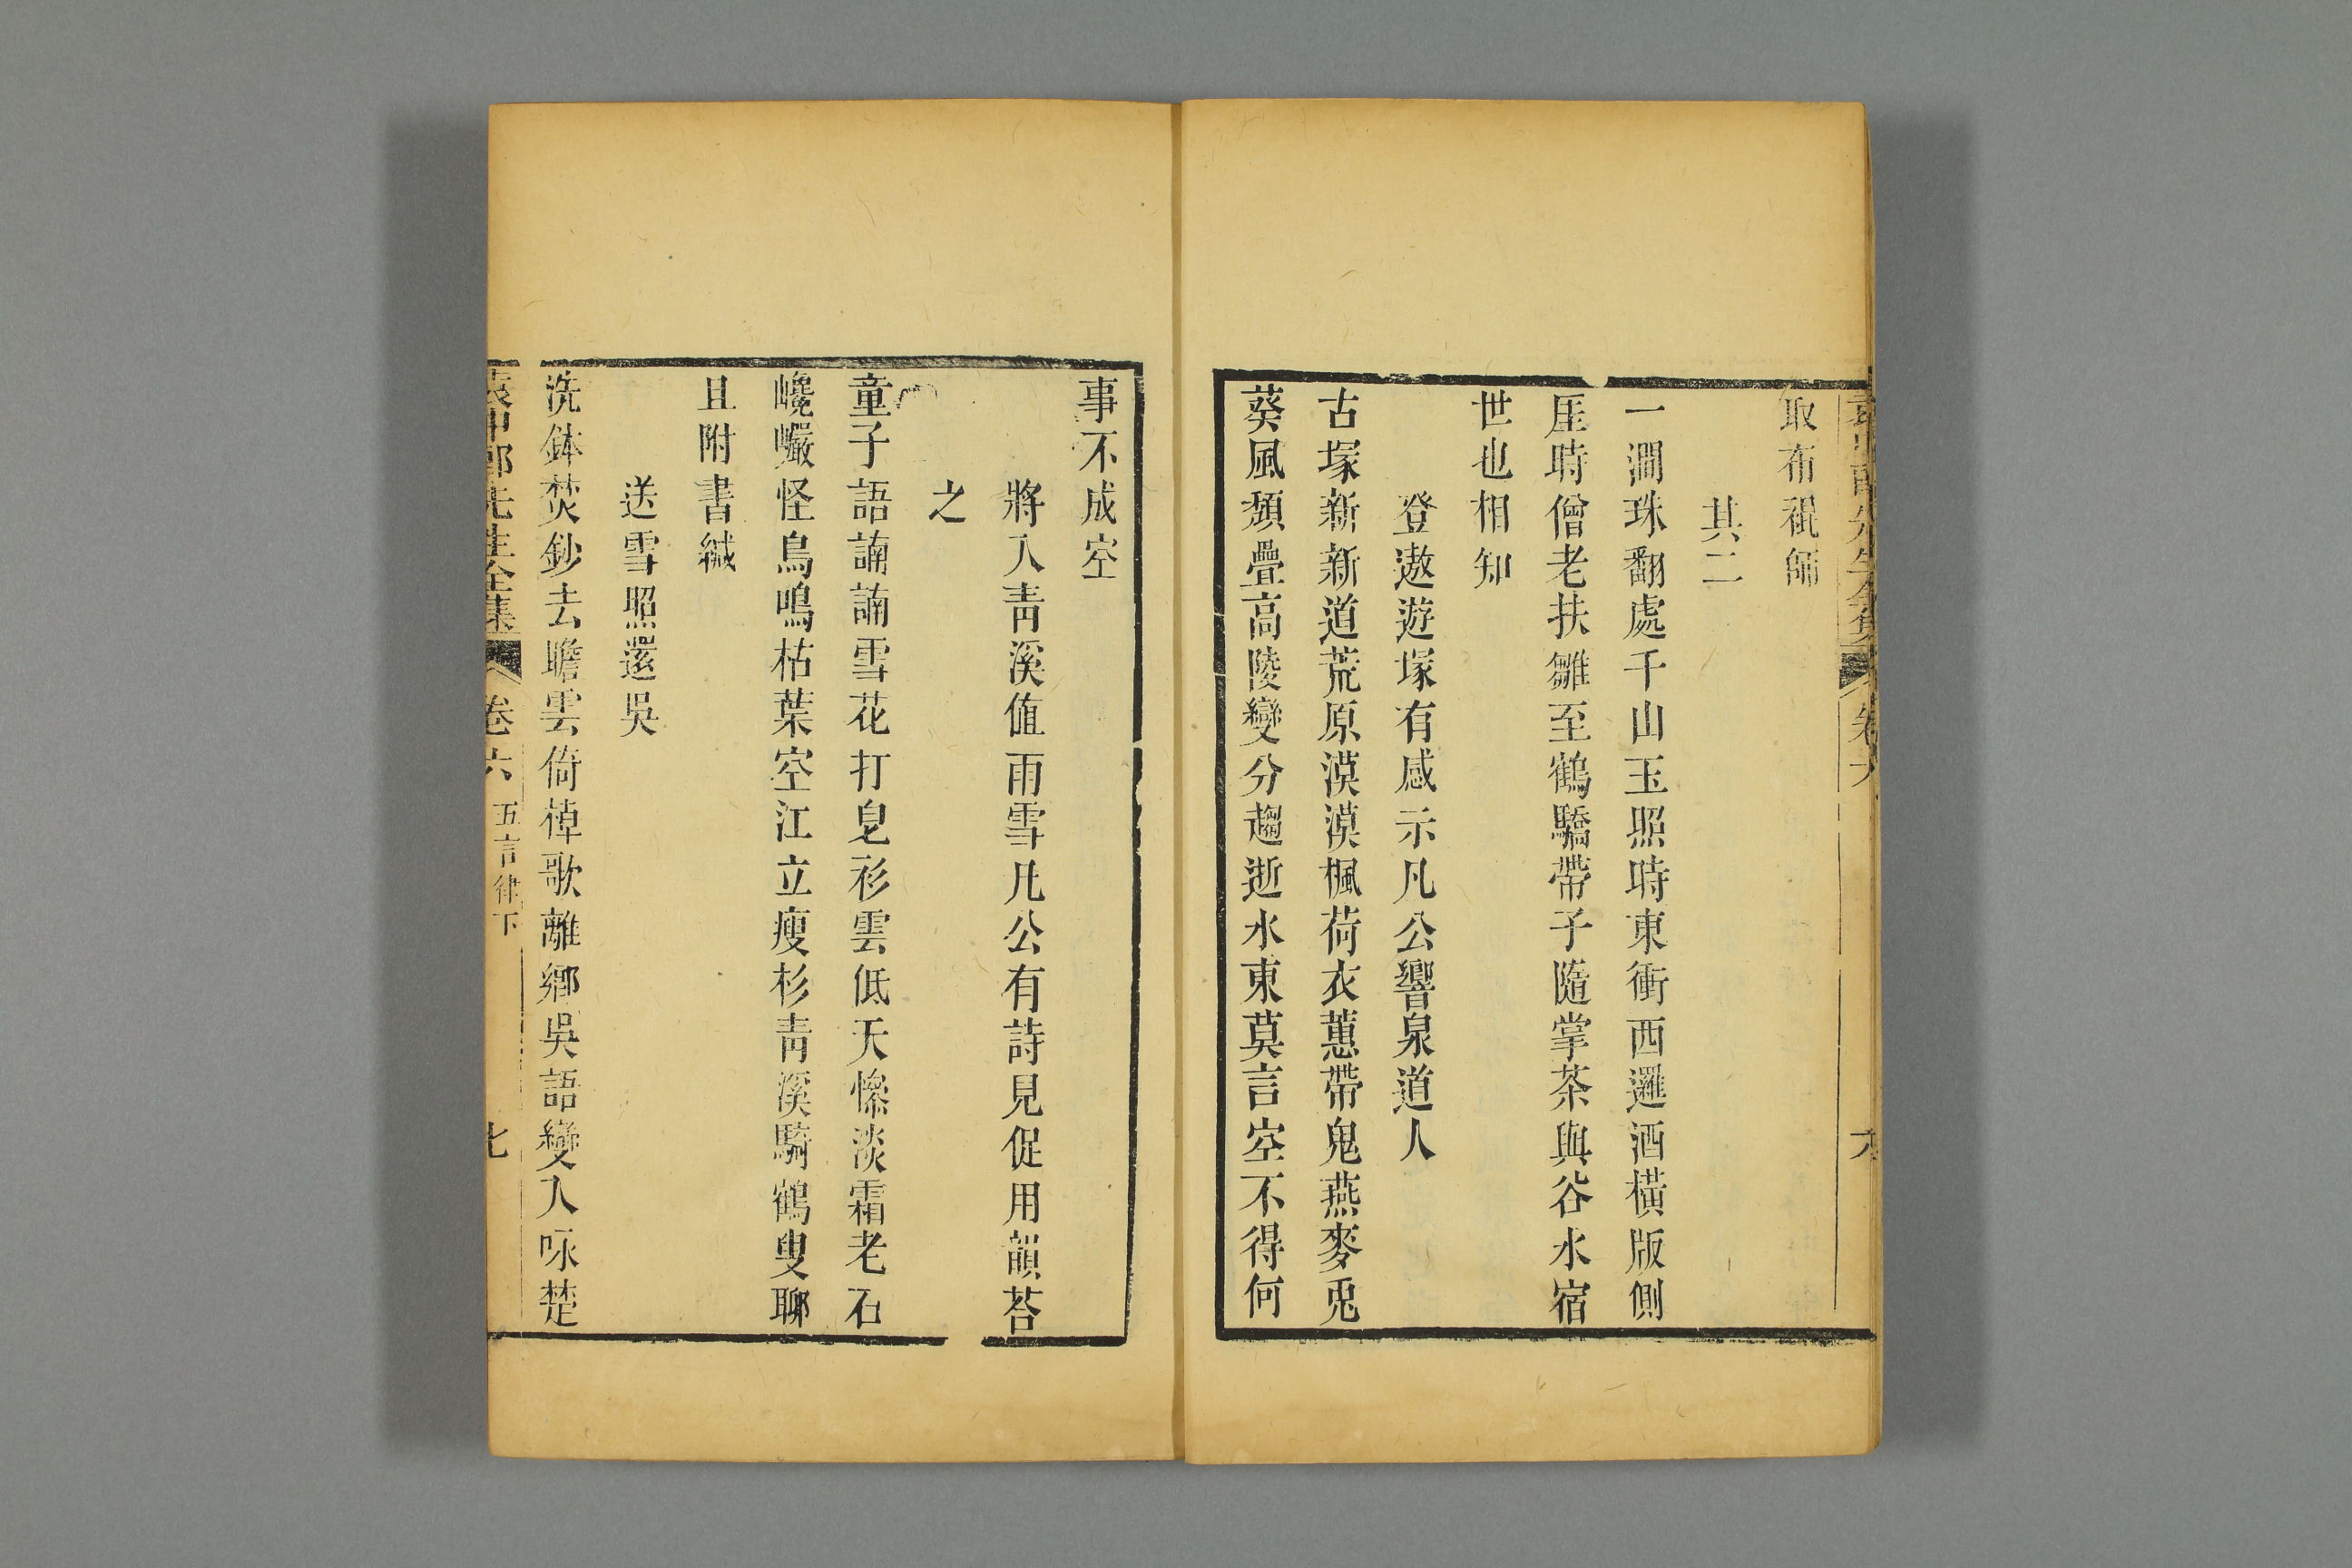 袁中郎先生全集 卷六 六
取布裩師
其二
一澗珠翻處千山玉照時東衝西邏酒橫版側
厓時僧老扶雛至鶴驕帶子隨掌茶與谷水宿
世也相知
登遨遊塚有感示凡公響泉道人
古塚新新道荒原漠漠楓荷衣蕙帶鬼燕麥兎
葵風頽疊高陵變分趨逝水東莫言空不得何
事不成空
將入靑溪値雨雪凡公有詩見促用韻荅
之
童子語諵諵雪花打皂衫雲低天慘淡霜老石
巉巗怪鳥鳴枯葉空江立瘦杉靑溪騎鶴叟聊
且附書緘
送雪照還吳
洗鉢焚鈔去瞻雲倚棹歌離鄉吳語變入咏楚
袁中郎先生全集 卷六 五言律下 七